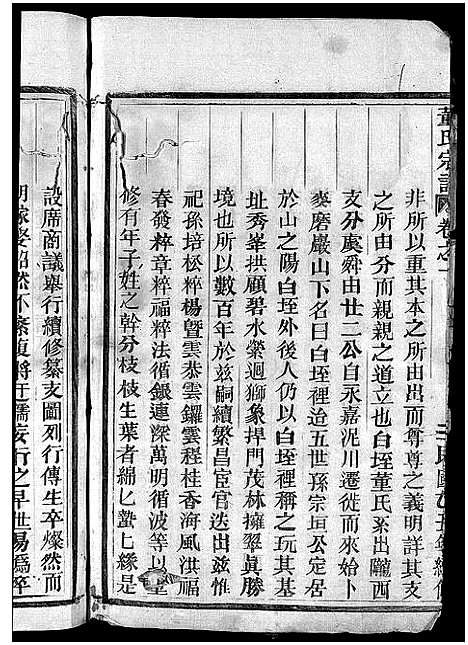 董氏宗譜 卷之一
民國乙丑年續修
非所以重其本之所由出而尊尊之義明其支
之所由分而親親之道立也白垤董氏系出隴西
支分虞舜由廿二公自永嘉泥川遷徙而來始卜
麥磨巖山下名曰白垤裡迨五世孫宗垣公定居
於山之陽白垤外後人仍以白垤裡稱之玩其基
址秀峯拱顧碧水縈迴獅象捍門茂林擁翠眞勝
境也所以數百年於茲嗣續繁昌臣官迭出茲惟
祀孫培松粹楊暨雲恭雲鑼雲程桂香海風淇福
春發粹章粹福粹法循銀連深萬明循波等以
修有年子姓之幹分枝枝生葉者綿匕蟄匕緣是
設席商議舉行續修纂支圖列行傳生卒燦然而
婚嫁娶昭然不紊復將迂孺妄行之早世易爲卒